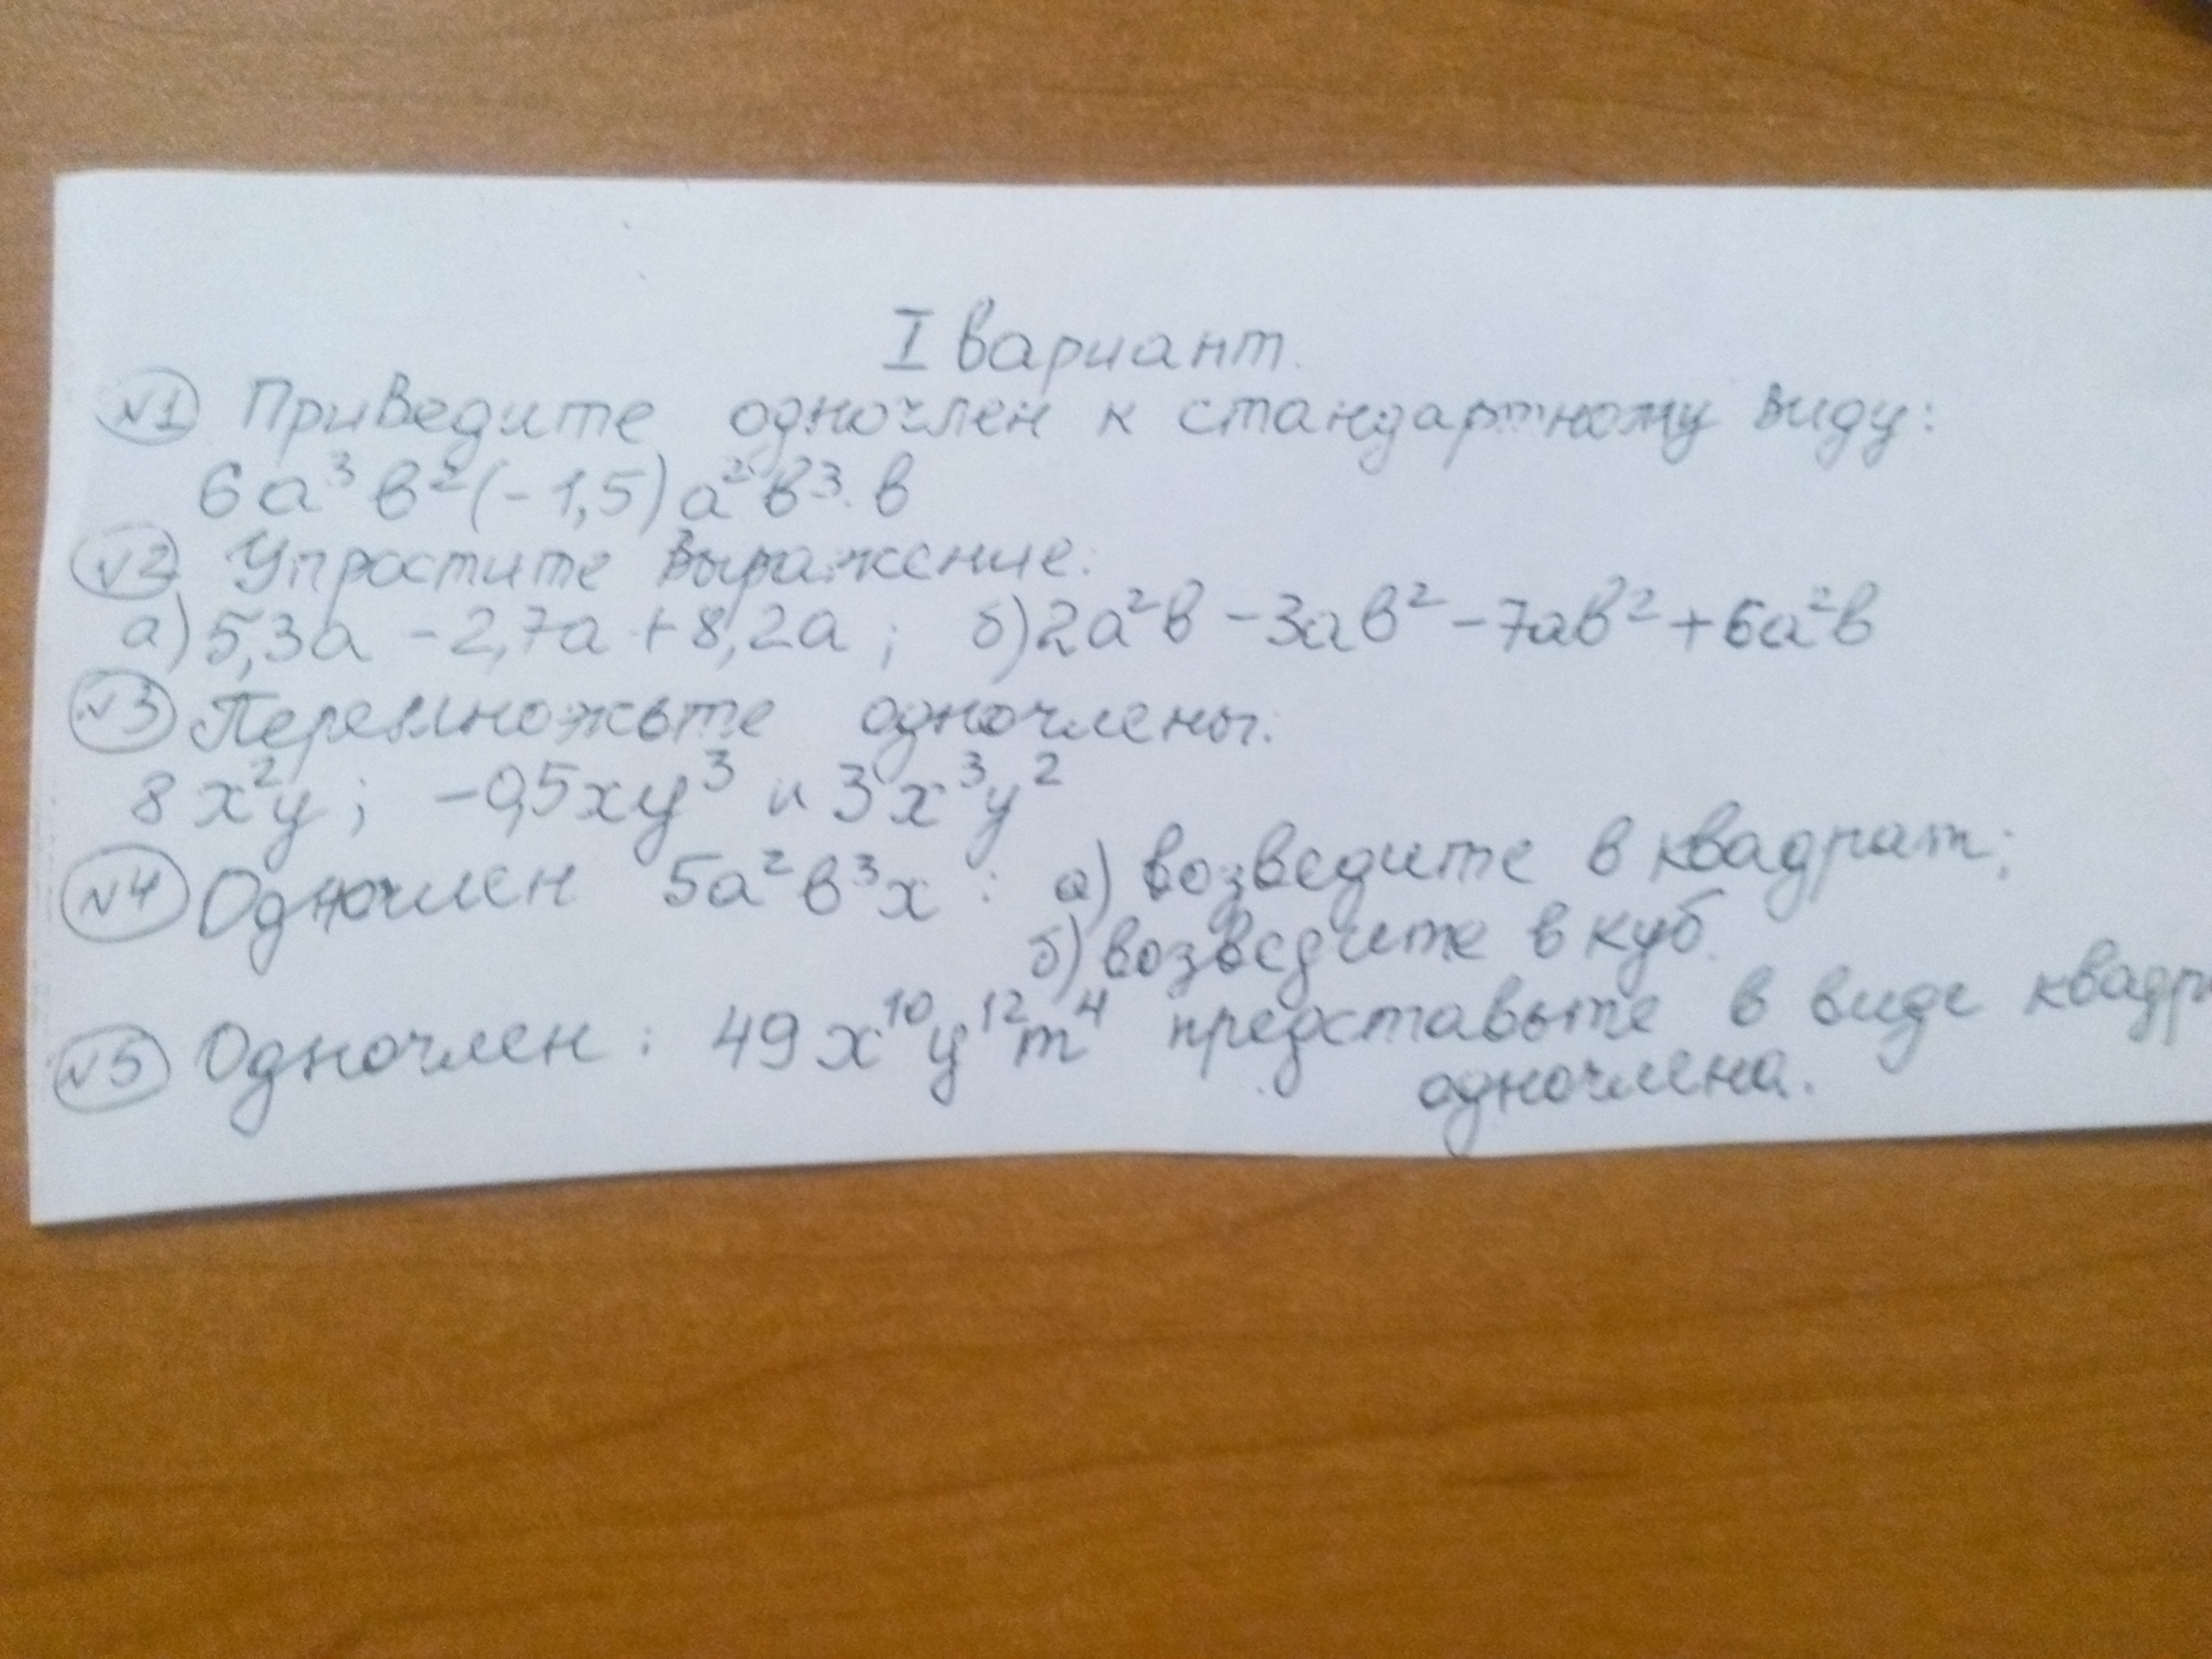 I вариант.
№1 Приведите одночлен к стандартному виду:
6а³в²(-1,5)а²в³·в
№2 Упростите выражение:
а) 5,3а - 2,7а + 8,2а; б) 2а²в - 3ав² - 7ав² + 6а²в
№3 Перемножьте одночлены:
8х²у; -0,5ху³ и 3х³у²
№4 Одночлен 5а²в³х: а) возведите в квадрат;
б) возведите в куб.
№5 Одночлен: 49х¹⁰у¹²m⁴ представьте в виде квадр
одночлена.